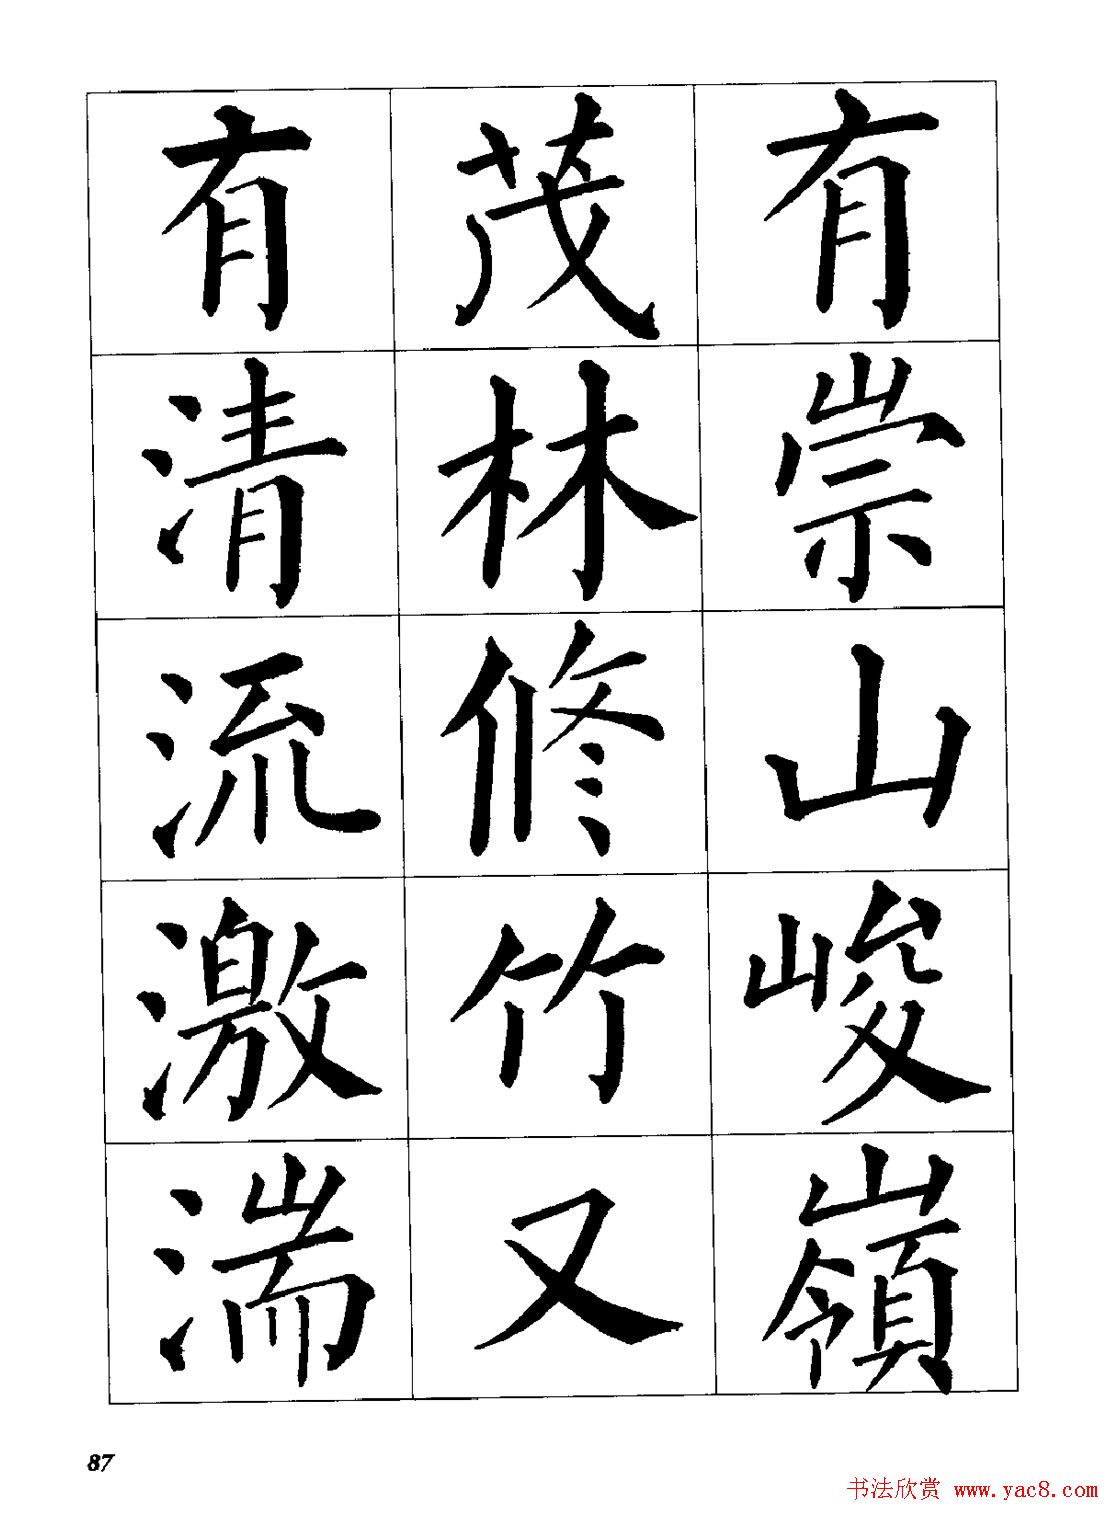 有崇山峻嶺
茂林修竹又
有清流激湍
87
书法欣赏 www.yac8.com